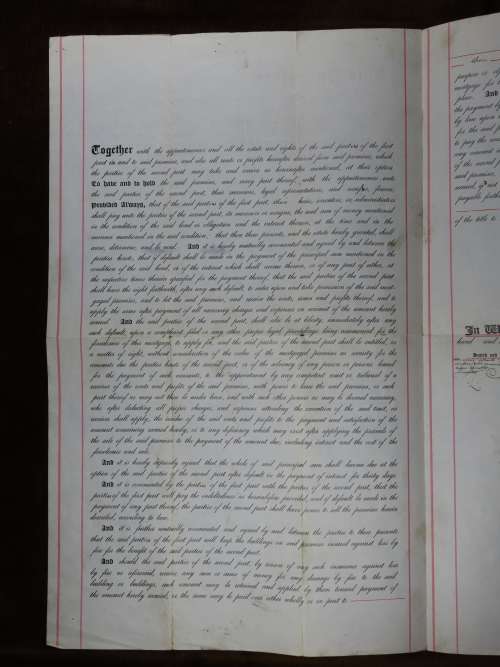 Together with the appurtenances and all the estate and rights of the said parties of the first
part in and to said premises, and also all rents or profits hereafter derived from said premises, which
the parties of the second part may take and receive as hereinafter mentioned, at their option
To have and to hold the said premises, and every part thereof, with the appurtenances unto
the said parties of the second part, their successors, legal representatives, and assigns, forever.
Provided Always, that if the said parties of the first part, their heirs, executors, or administrators
shall pay unto the parties of the second part, its successors or assigns, the said sum of money mentioned
in the condition of the said bond or obligation and the interest thereon, at the time and in the
manner mentioned in the said condition, that then these presents, and the estate hereby granted, shall
cease, determine, and be void. And it is hereby mutually covenanted and agreed by and between the
parties hereto, that if default shall be made in the payment of the principal sum mentioned in the
condition of the said bond, or of the interest which shall accrue thereon, or of any part of either, at
the respective times therein specified for the payment thereof, that the said parties of the second part
shall have the right forthwith, after any such default, to enter upon and take possession of the said mort-
gaged premises, and to let the said premises, and receive the rents, issues and profits thereof, and to
apply the same after payment of all necessary charges and expenses on account of the amount hereby
secured. And the said parties of the second part, shall also be at liberty, immediately after any
such default, upon a complaint filed or any other proper legal proceedings being commenced for the
foreclosure of this mortgage, to apply for, and the said parties of the second part shall be entitled, as
a matter of right, without consideration of the value of the mortgaged premises as security for the
amounts due the parties hereto of the second part, or of the solvency of any person or persons bound
for the payment of such amounts, to the appointment by any competent court or tribunal of a
receiver of the rents and profits of the said premises, with power to lease the said premises, or such
part thereof as may not then be under lease, and with such other powers as may be deemed necessary,
who after deducting all proper charges, and expenses attending the execution of the said trust, as
receiver shall apply, the residue of the said rents and profits to the payment and satisfaction of the
amount remaining secured hereby, or to any deficiency which may exist after applying the proceeds of
the sale of the said premises to the payment of the amount due, including interest and the cost of the
foreclosure and sale.
And it is hereby expressly agreed that the whole of said principal sum shall become due at the
option of the said parties of the second part after default in the payment of interest for thirty days.
And it is covenanted by the parties of the first part with the parties of the second part, that the
parties of the first part will pay the indebtedness as hereinbefore provided, and if default be made in the
payment of any part thereof, the parties of the second part shall have power to sell the premises herein
described, according to law.
And it is further mutually covenanted and agreed by and between the parties to these presents
that the said parties of the first part will keep the buildings on said premises insured against loss by
fire for the benefit of the said parties of the second part.
And should the said parties of the second part, by reason of any such insurance against loss
by fire as aforesaid, receive any sum or sums of money for any damage by fire to the said
building or buildings, such amount may be retained and applied by them toward payment of
the amount hereby secured, or the same may be paid over either wholly or in part to
mortgage for
place. And
the payment
by law upon
for the said
to pay the
any amount
of the said
and premises,
payable forth
of the title to
In W
hand and